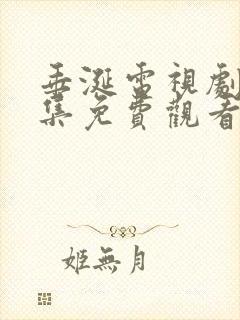 垂涎電視劇
集免費觀看
姬無月